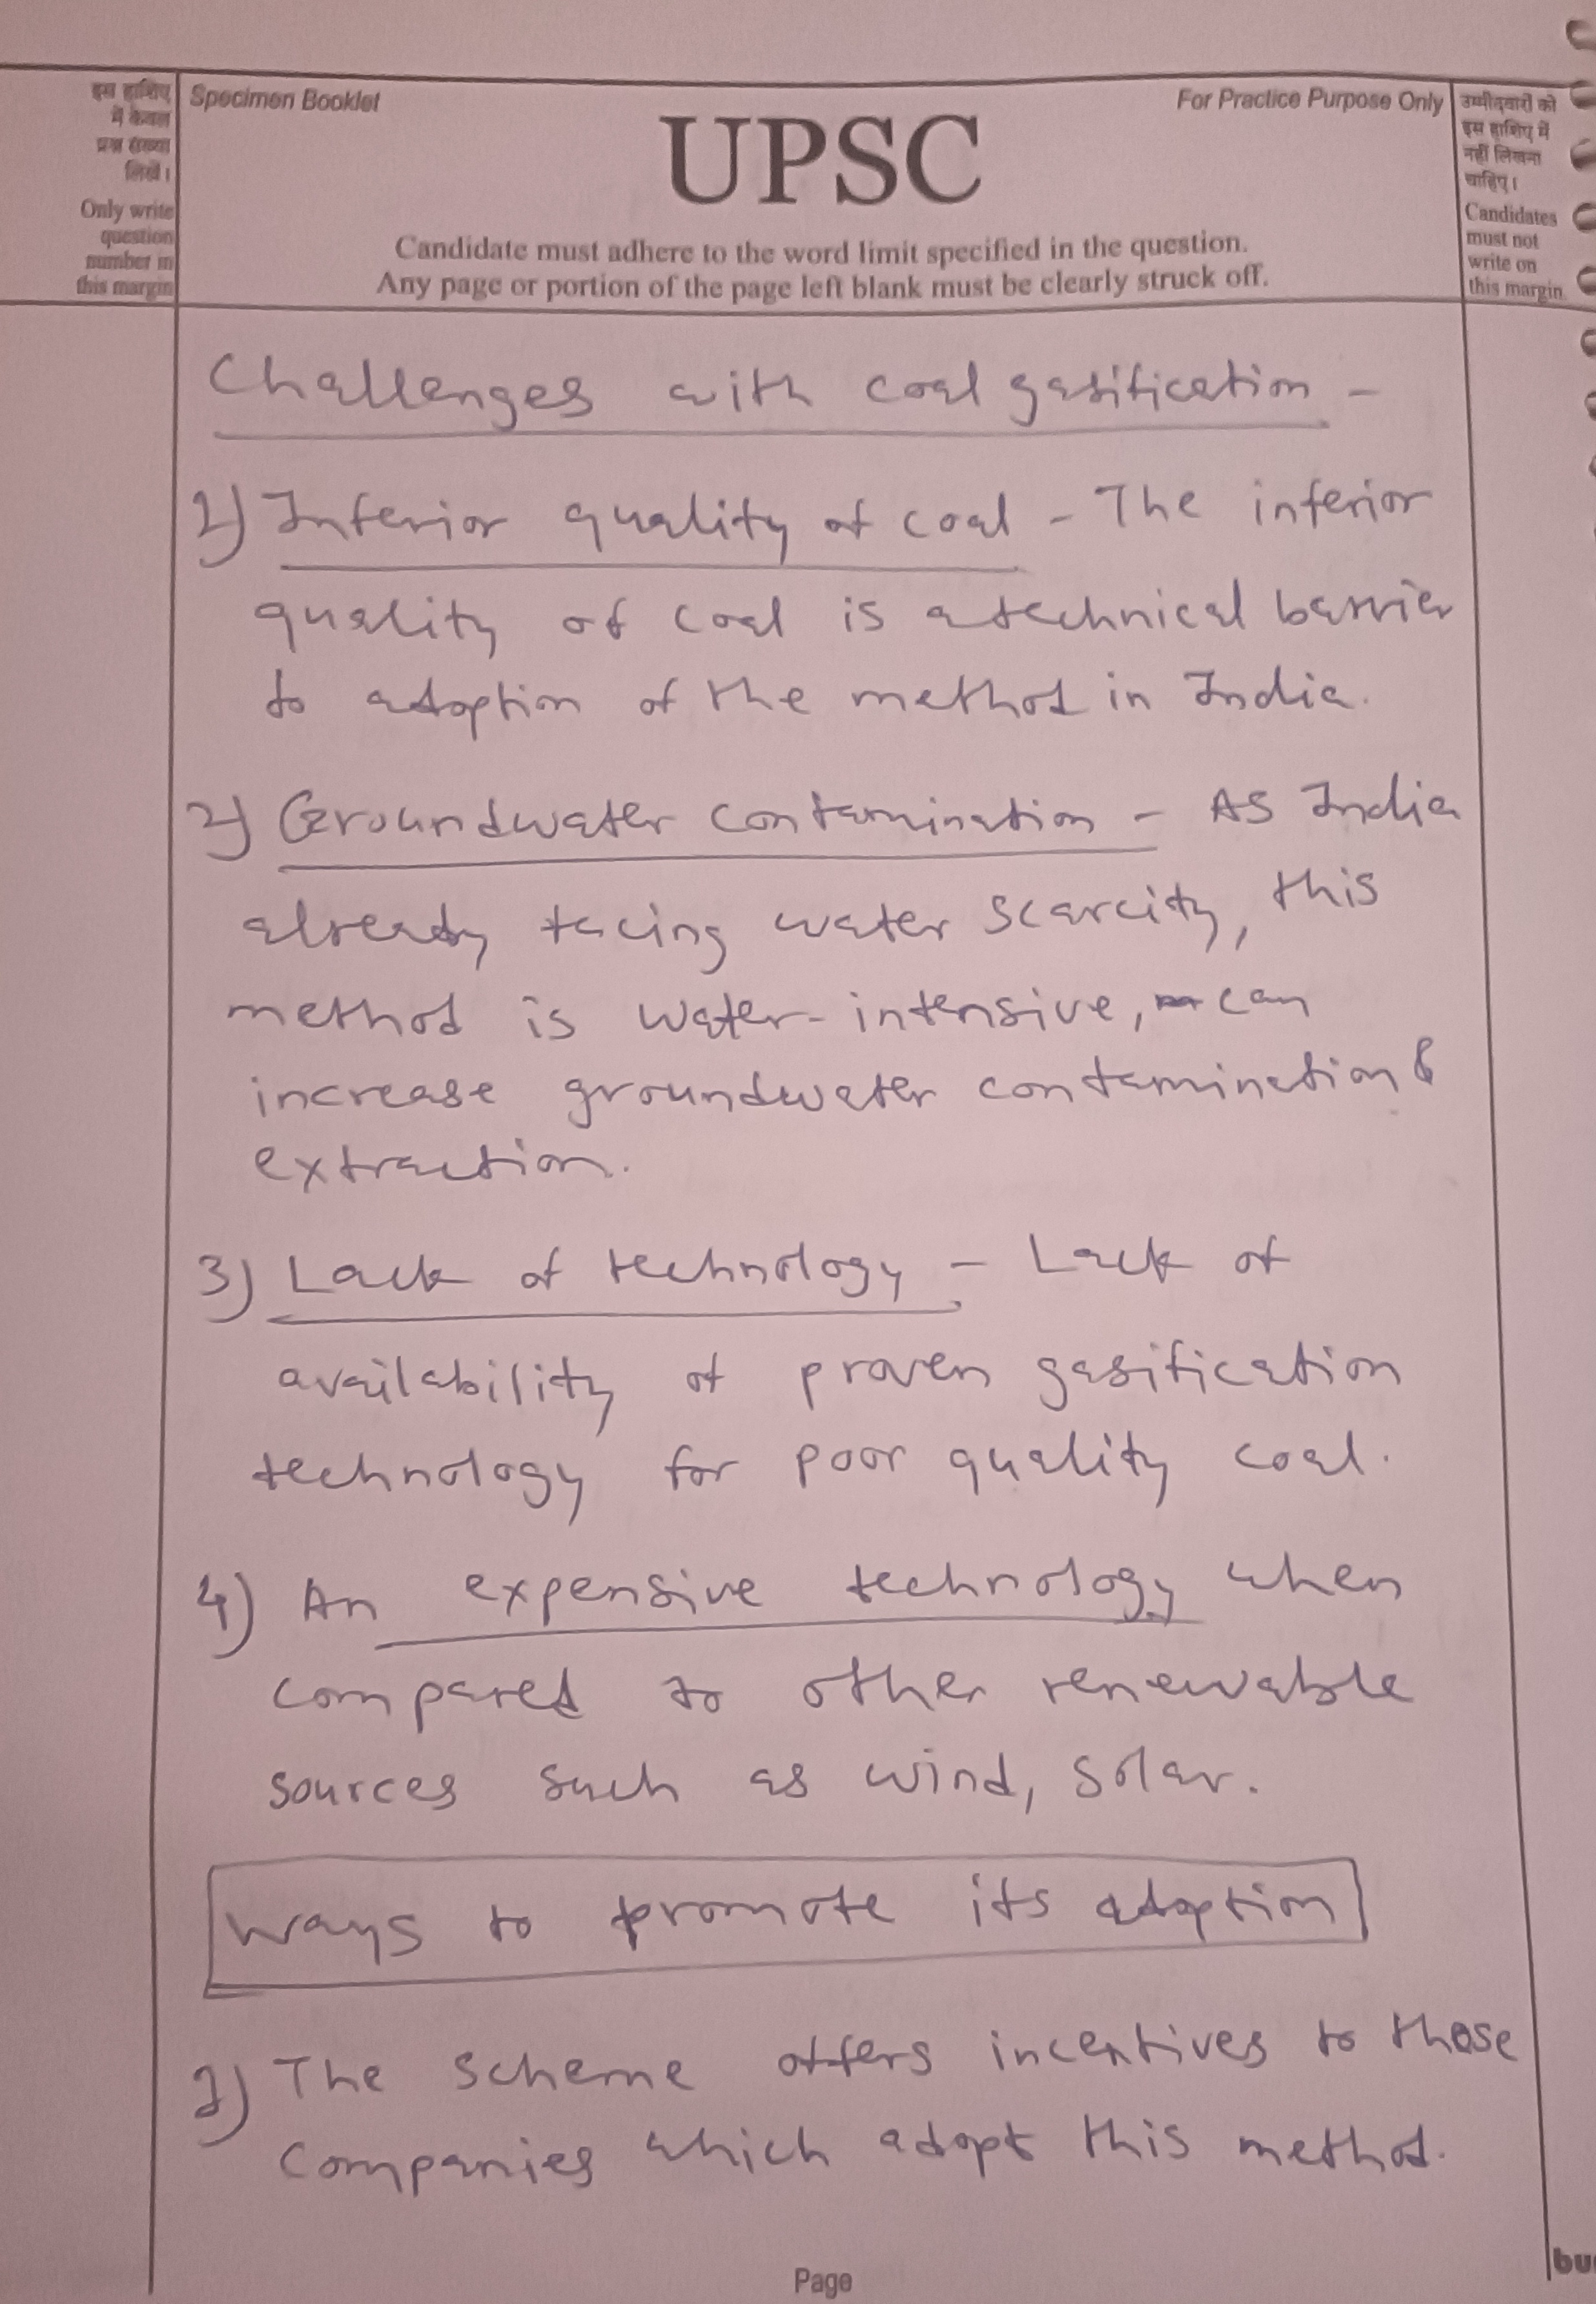 इस हाशिए
में केवल
प्रश्न संख्या
लिखें।
Only write
question
number in
this margin
Specimen Booklet
For Practice Purpose Only
UPSC
Candidate must adhere to the word limit specified in the question.
Any page or portion of the page left blank must be clearly struck off.
उम्मीदवारों को
इस हाशिए में
नहीं लिखना
चाहिए।
Candidates
must not
write on
this margin
Challenges with coal gasification -
1) Inferior quality of coal - The inferior
quality of coal is a technical barrier
to adoption of the method in India.
2) Groundwater contamination - As India
already facing water scarcity, this
method is water-intensive, can
increase groundwater contamination &
extraction.
3) Lack of technology - Lack of
availability of proven gasification
technology for poor quality coal.
4) An expensive technology when
compared to other renewable
sources such as wind, solar.
Ways to promote its adoption
1) The scheme offers incentives to those
companies which adopt this method.
Page